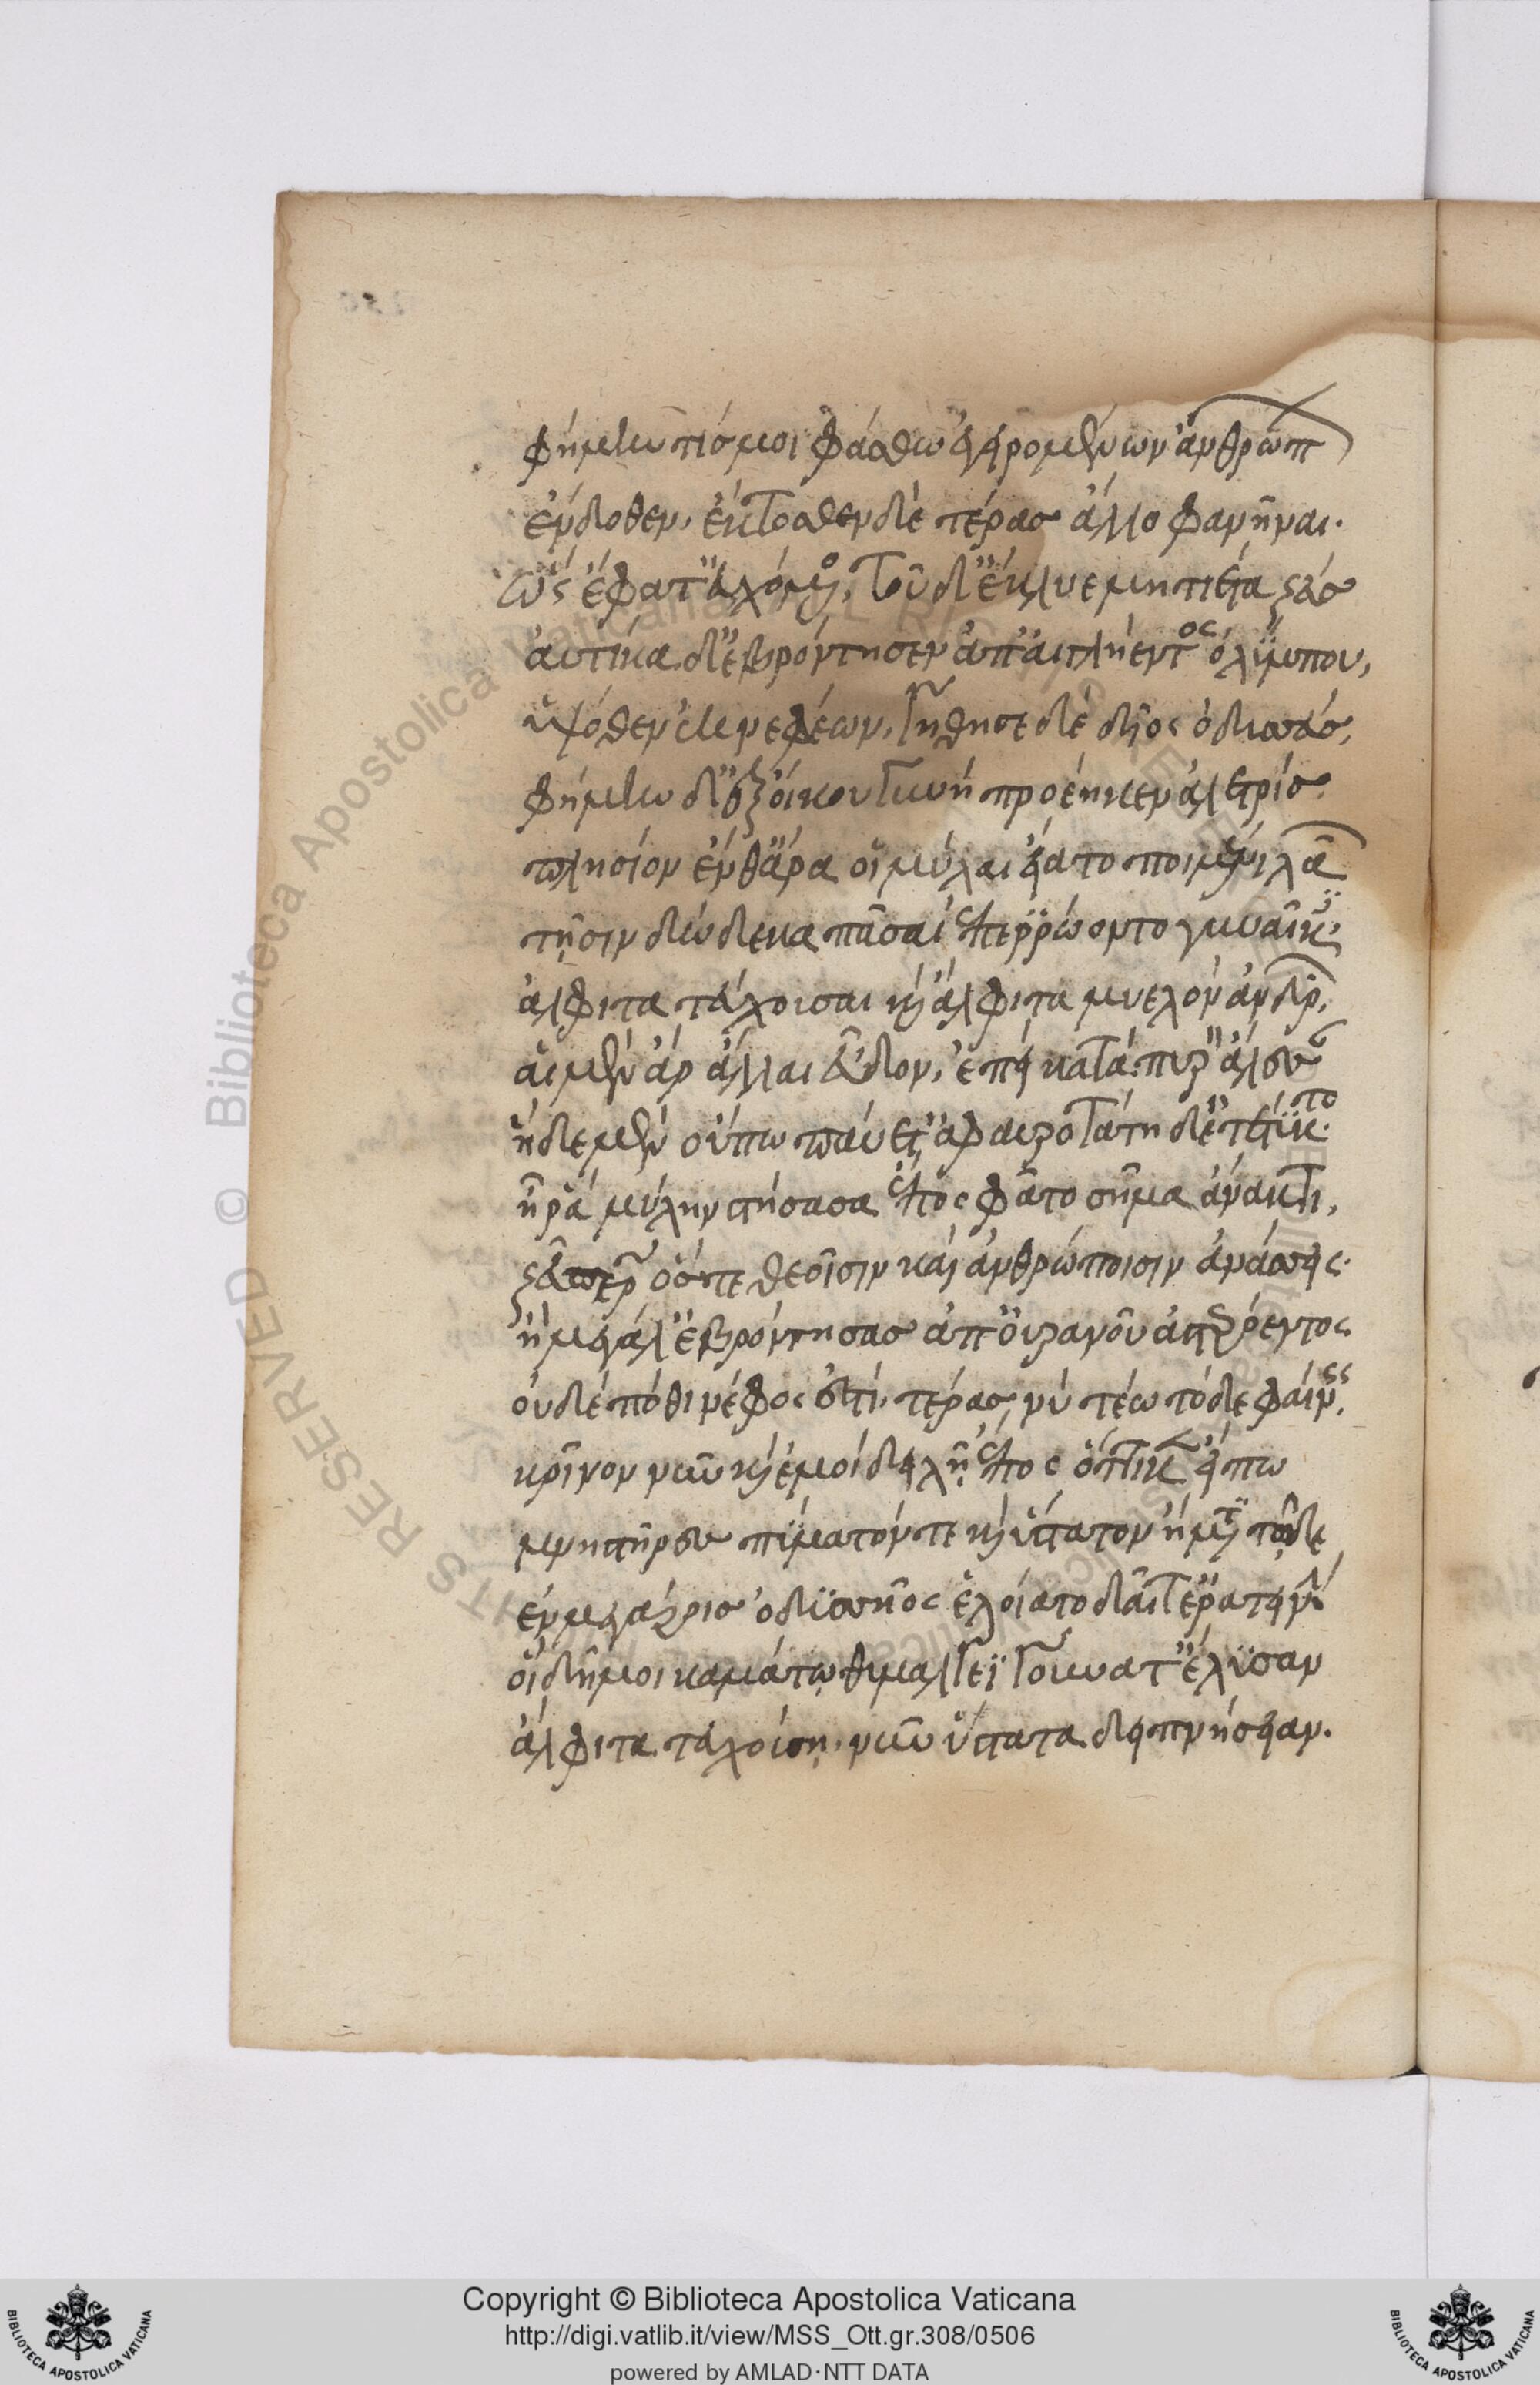 φήμην τίσ μοι φάσθω ἐγειρομένων ἀνθρώπων
ἔνδοθεν, ἔκτοσθεν δὲ τέρασ ἄλλο φανῆναι.
ὣς ἔφατ' εὐχόμενος, τοῦ δ' ἔκλυε μητιέτα ζεύσ
αὐτίκα δ' ἐβρόντησεν ἀπ' αἰγλήεντος ὀλύμπου,
ὑψόθεν ἐκ νεφέων, γήθησε δὲ δῖος ὀδυσσεύσ,
φήμην δ' ἐξ οἴκου γυνὴ προέηκεν ἀλετρίσ
πλησίον ἔνθ' ἄρα οἱ μύλαι εἵατο ποιμένι λαῶν
τῇσιν δώδεκα πᾶσαι ἐπερρώοντο γυναῖκες
ἄλφιτα τεύχουσαι καὶ ἀλείφατα μυελὸν ἀνδρῶν,
αἱ μὲν ἄρ ἄλλαι εὗδον, ἐπεὶ κατὰ πυρὸν ἄλεσσαν
ἡ δὲ μία οὔπω παύετ', ἀφαυροτάτη δ' ἐτέτυκτο
ἥ ῥα μύλην στήσασα ἔπος φάτο σῆμα ἄνακτι,
ζεῦ πάτερ ὅστε θεοῖσιν καὶ ἀνθρώποισιν ἀνάσσεις.
ἦ μεγάλ' ἐβρόντησασ ἀπ' οὐρανοῦ ἀστερόεντος
οὐδέ ποθι νέφος ἐστί. τέρασ νύ τέω τόδε φαίνεις,
κρῖνον νῦν καὶ ἐμοὶ δειλῇ ἔπος ὅττι κεν εἴπω
μνηστῆρες πύματόν τε καὶ ὕστατον ἤματι τῷδε
ἐν μεγάροισ ὀδυσσῆος ἑλοίατο δαῖτ' ἐρατεινήν
οἳ δή μοι καμάτῳ θυμαλγέϊ γούνατ' ἔλυσαν
ἄλφιτα τευχούσῃ. νῦν ὕστατα δειπνήσειαν.
Copyright © Biblioteca Apostolica Vaticana
http://digi.vatlib.it/view/MSS_Ott.gr.308/0506
powered by AMLAD·NTT DATA